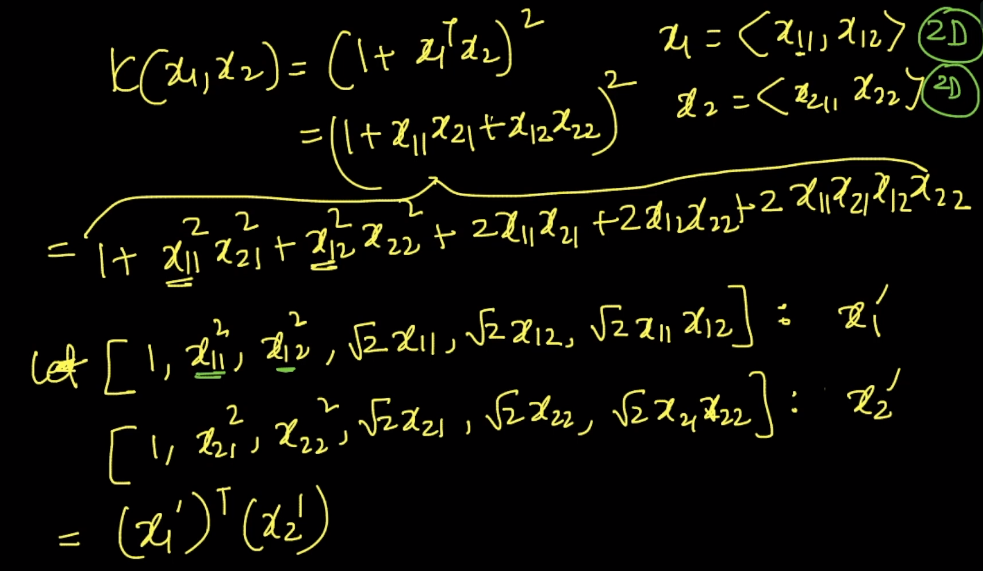 K(x₁,x₂) = (1 + x₁ᵀx₂)² x₁ = <x₁₁, x₁₂> 2D
= (1 + x₁₁x₂₁ + x₁₂x₂₂)² x₂ = <x₂₁, x₂₂> 2D
= 1 + x₁₁²x₂₁² + x₁₂²x₂₂² + 2x₁₁x₂₁ + 2x₁₂x₂₂ + 2x₁₁x₂₁x₁₂x₂₂
let [1, x₁₁², x₁₂², √2x₁₁, √2x₁₂, √2x₁₁x₁₂] : x₁′
[1, x₂₁², x₂₂², √2x₂₁, √2x₂₂, √2x₂₁x₂₂] : x₂′
= (x₁′)ᵀ(x₂′)